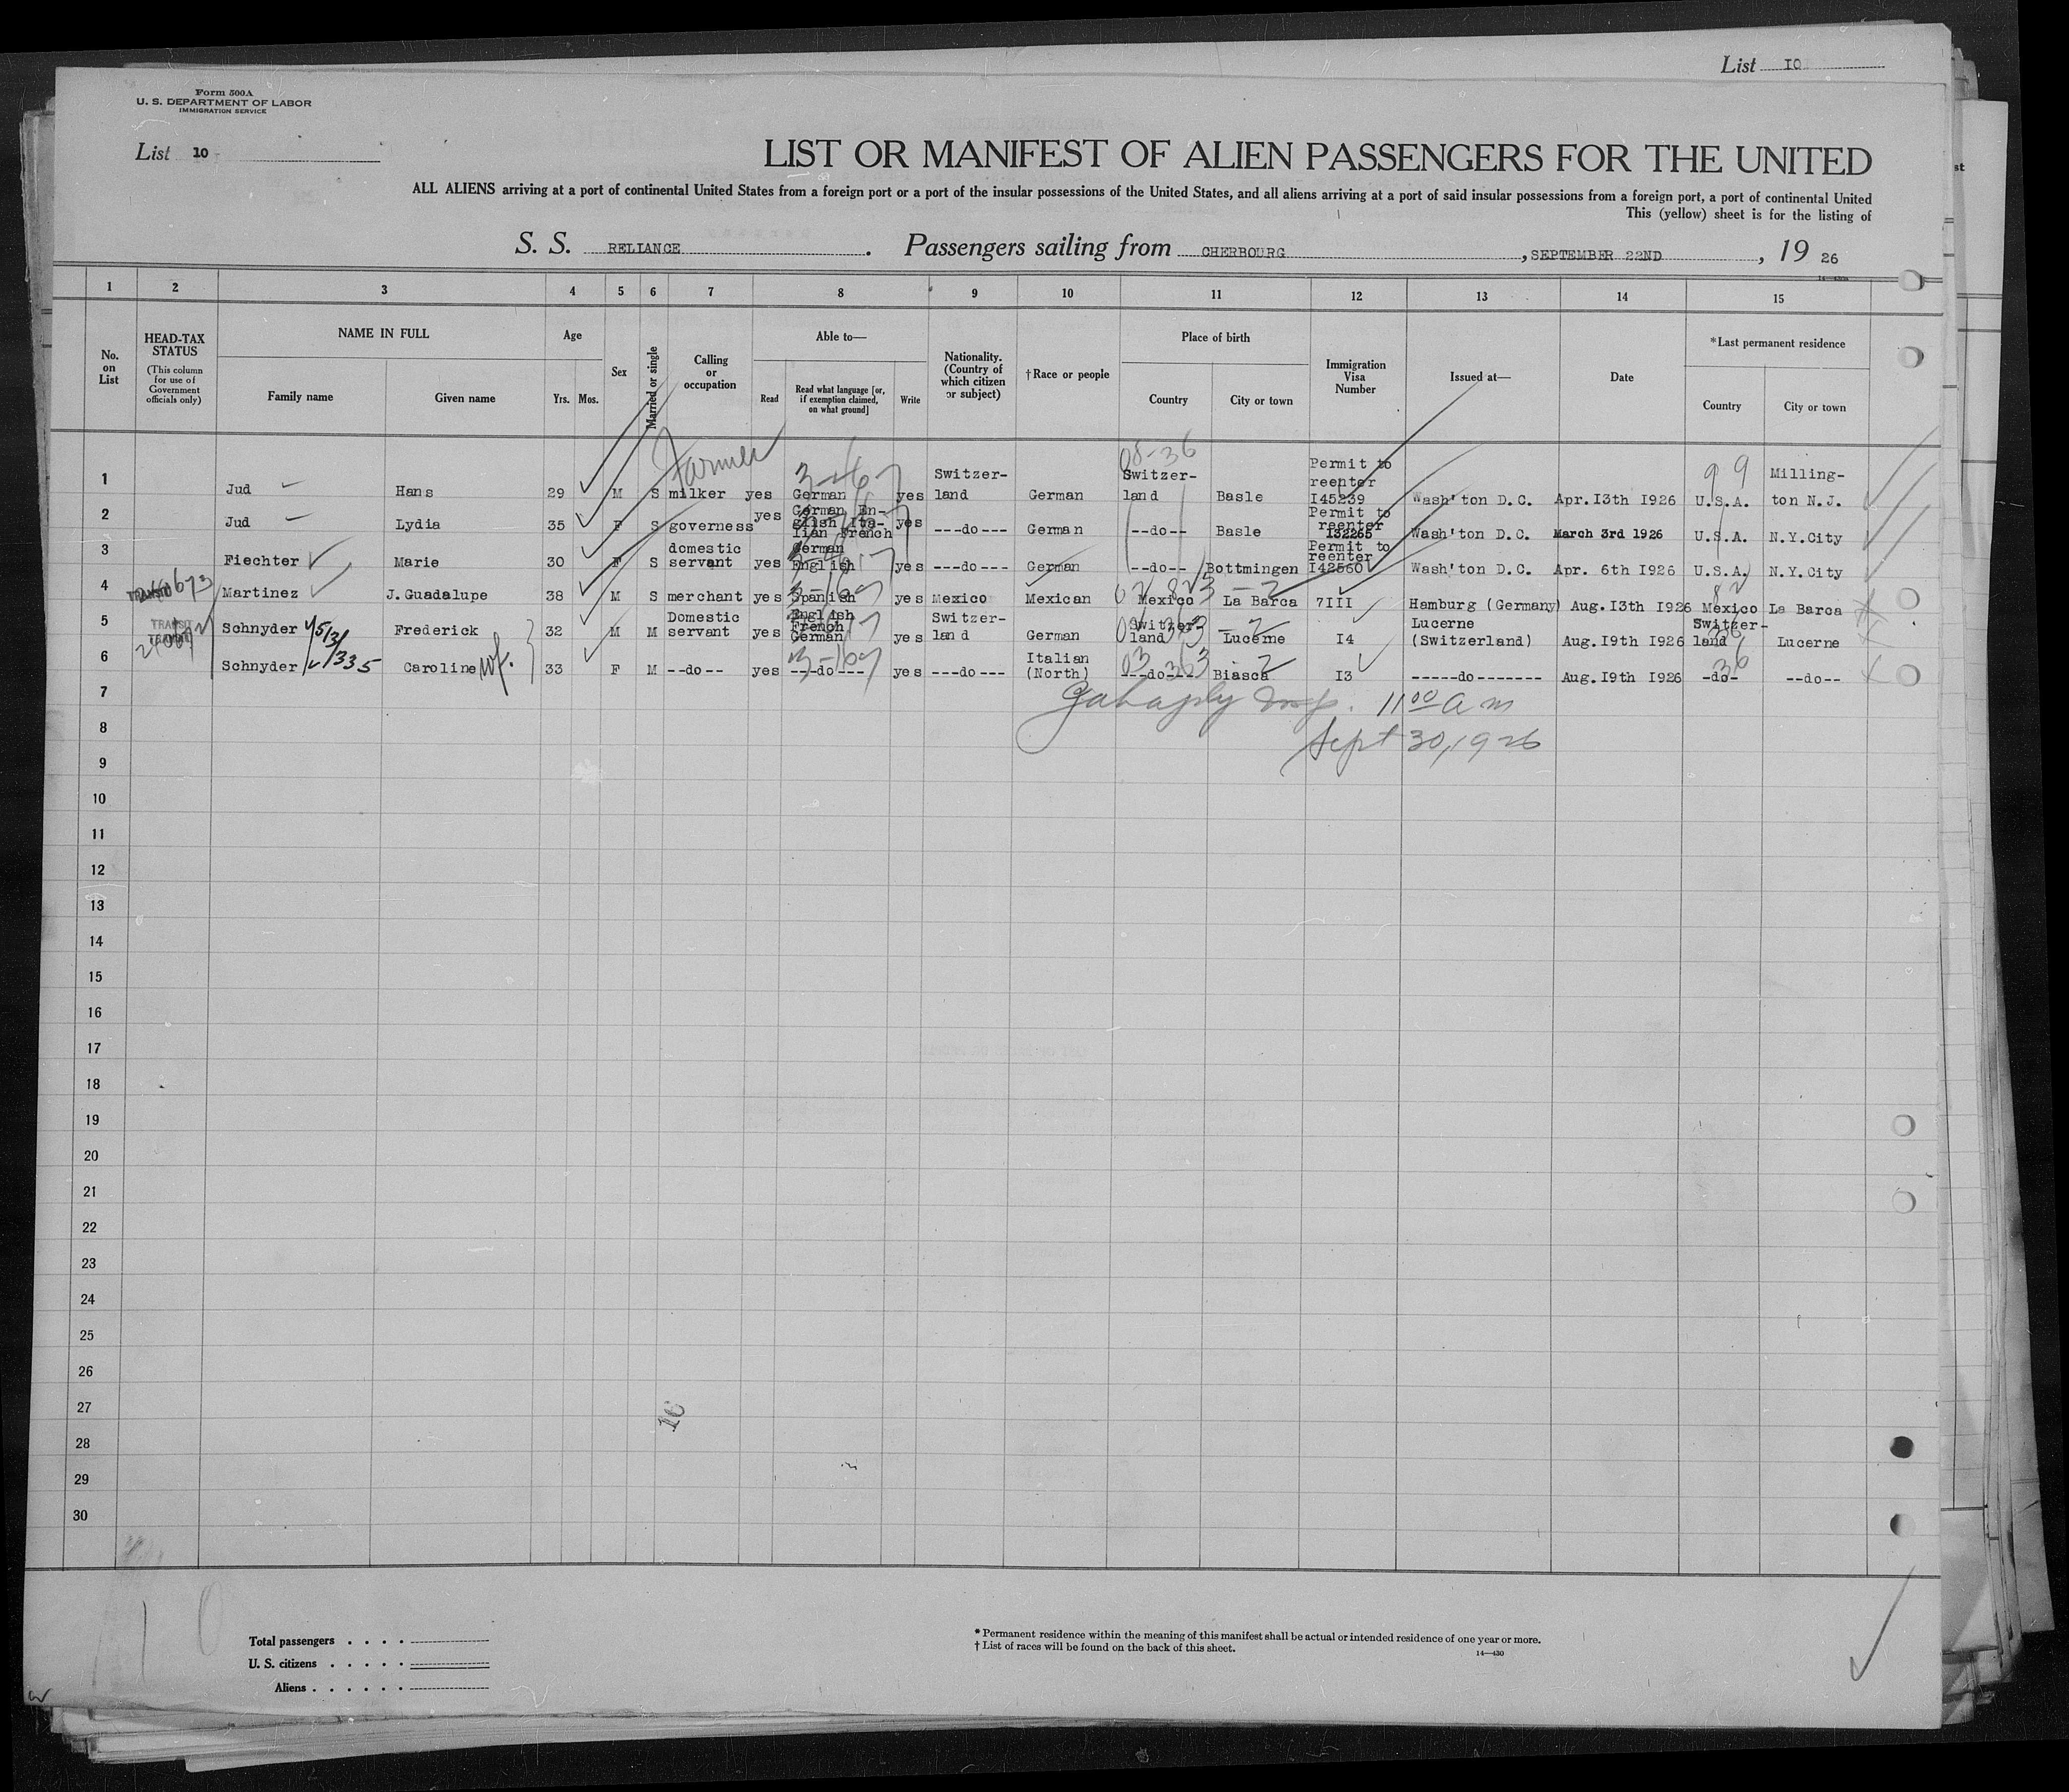 List 10
Form 500A
U. S. DEPARTMENT OF LABOR
IMMIGRATION SERVICE
List 10
LIST OR MANIFEST OF ALIEN PASSENGERS FOR THE UNITED
ALL ALIENS arriving at a port of continental United States from a foreign port or a port of the insular possessions of the United States, and all aliens arriving at a port of said insular possessions from a foreign port, a port of continental United
This (yellow) sheet is for the listing of
S. S. RELIANCE. Passengers sailing from CHERBOURG, SEPTEMBER 22ND, 19 26
1 2 3 4 5 6 7 8 9 10 11 12 13 14 15
No. on List
HEAD-TAX STATUS
(This column for use of Government officials only)
NAME IN FULL
Family name Given name
Age
Yrs. Mos.
Sex
Married or single
Calling or occupation
Able to—
Read Read what language [or, if exemption claimed, on what ground] Write
Nationality. (Country of which citizen or subject)
†Race or people
Place of birth
Country City or town
Immigration Visa Number
Issued at—
Date
*Last permanent residence
Country City or town
Farmer
08-36
99
1 Jud Hans 29 M S milker yes German yes Switzer-land German Switzer-land Basle Permit to reenter I45239 Wash'ton D.C. Apr.I3th I926 U.S.A. Milling-ton N.J.
2 Jud Lydia 35 F S governess yes German En-glish Ita-lian French yes ---do--- German --do-- Basle Permit to reenter I32265 Wash'ton D.C. March 3rd 1926 U.S.A. N.Y.City
3 Fiechter Marie 30 F S domestic servant yes German English yes ---do--- German --do-- Bottmingen Permit to reenter I42560 Wash'ton D.C. Apr. 6th I926 U.S.A. N.Y.City
4 Martinez J.Guadalupe 38 M S merchant yes Spanish yes Mexico Mexican Mexico La Barca 7III Hamburg (Germany) Aug.I3th I926 Mexico La Barca
5 TRANSIT Schnyder Frederick 32 M M Domestic servant yes English French German yes Switzer-land German Switzer-land Lucerne I4 Lucerne (Switzerland) Aug.I9th I926 Switzer-land Lucerne
6 Schnyder Caroline wf. 33 F M --do-- yes ---do--- yes ---do--- Italian (North) ---do--- Biasca I3 -----do------- Aug.I9th I926 -do- --do--
7
11 00 a m
8
Sept 30, 1926
9
10
11
12
13
14
15
16
17
18
19
20
21
22
23
24
25
26
27
16
28
29
30
10
Total passengers . . . .
U. S. citizens . . . . .
Aliens . . . . . .
* Permanent residence within the meaning of this manifest shall be actual or intended residence of one year or more.
† List of races will be found on the back of this sheet.
14—430